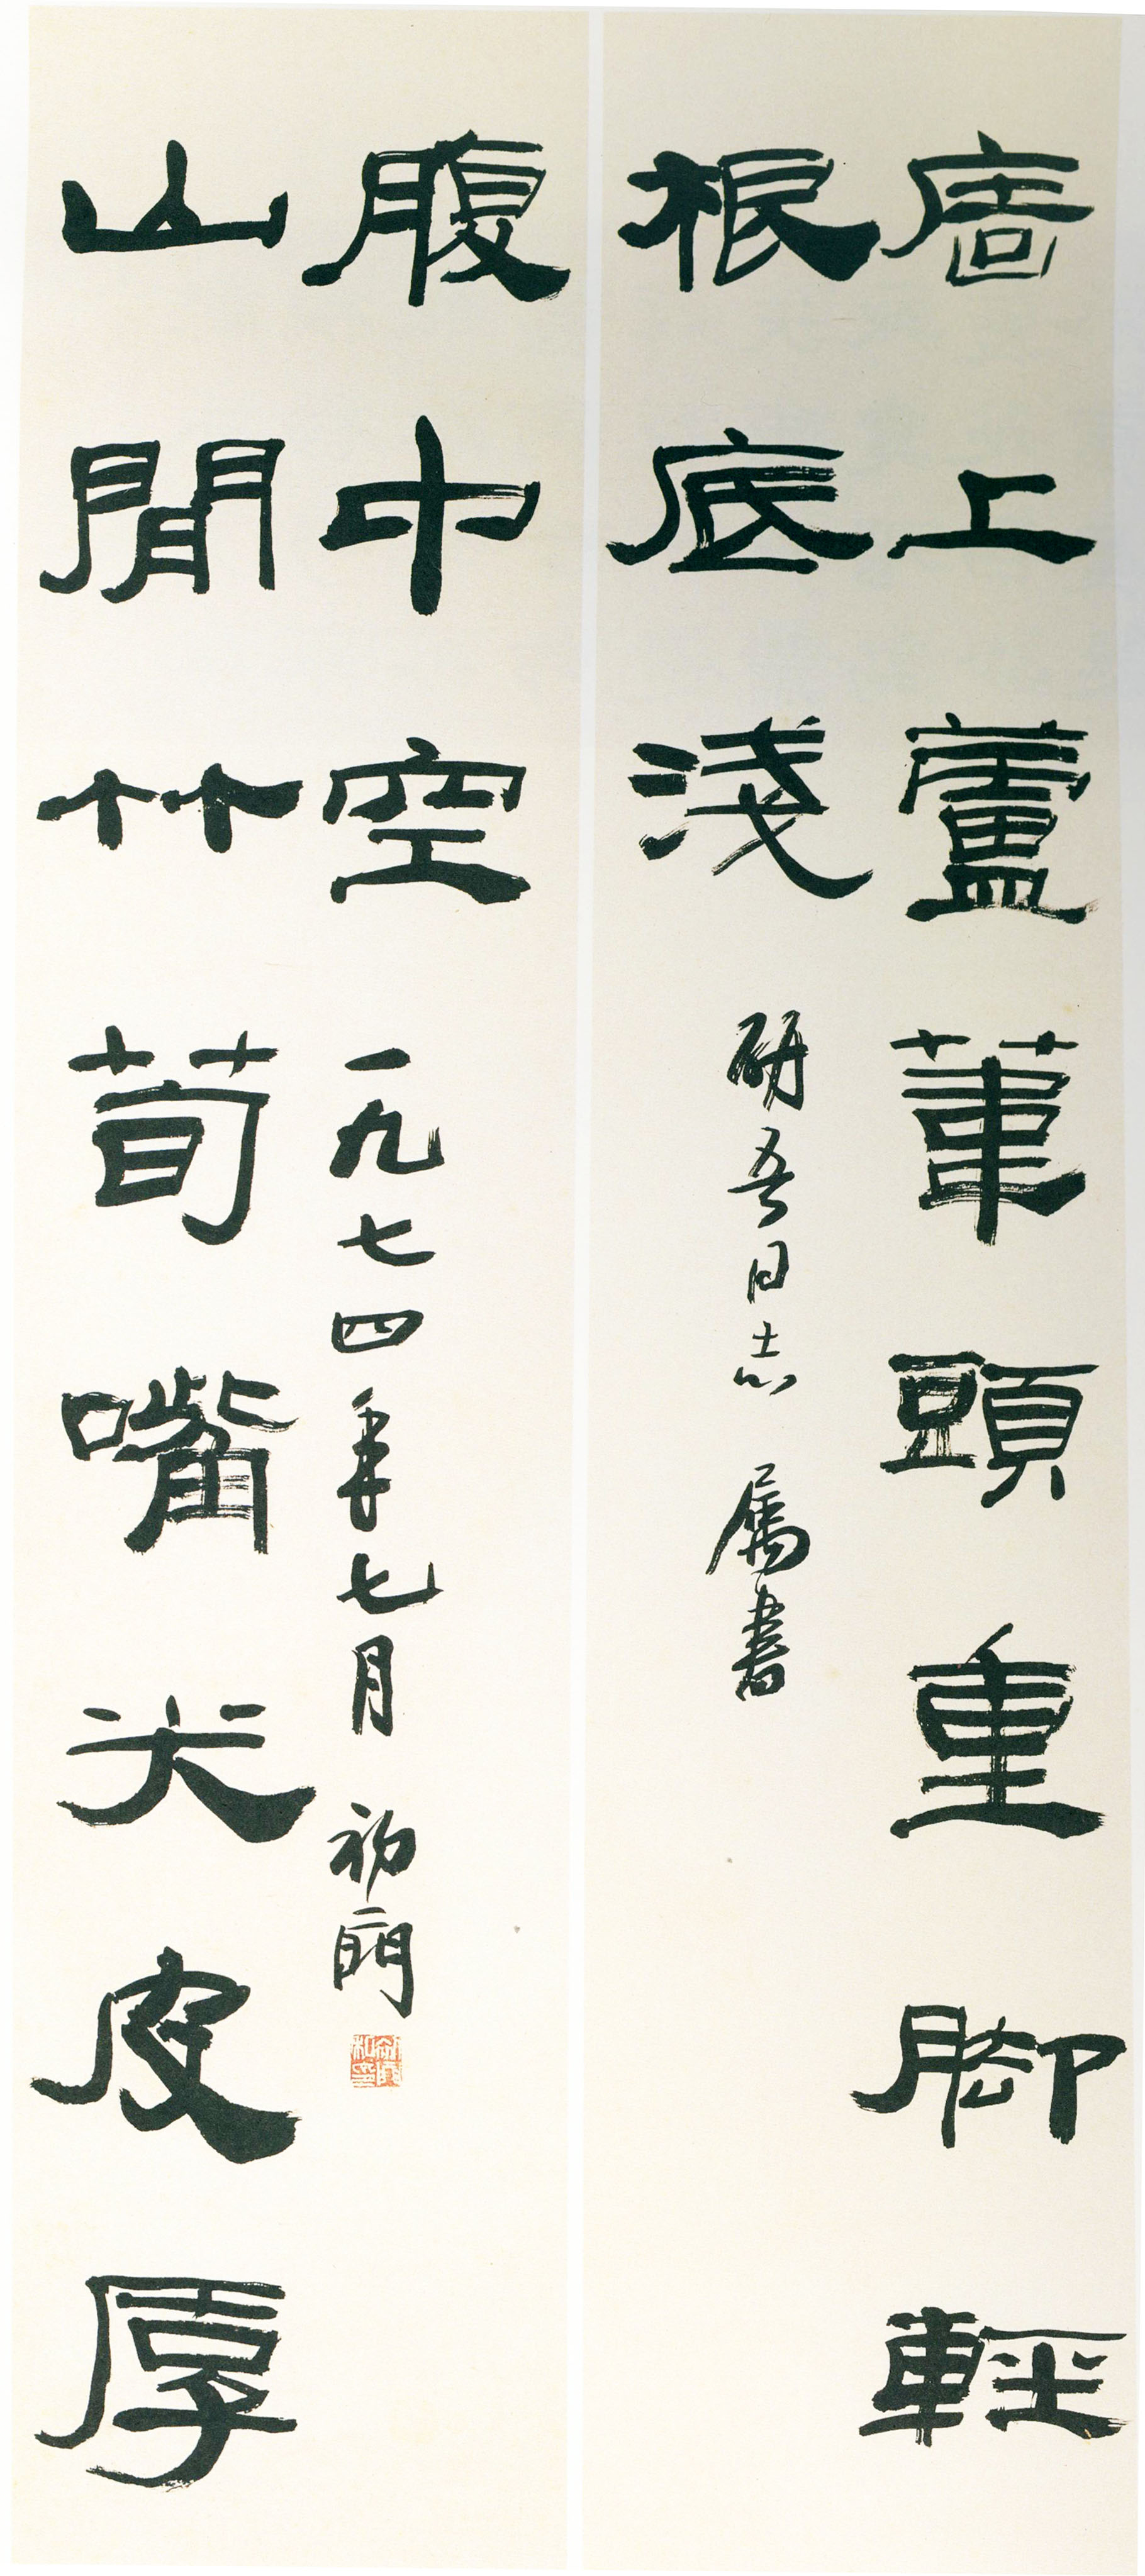 廧上蘆葦頭重脚輕
根底淺
研吾同志 属書
山閒竹荀嘴尖皮厚
腹中空
一九七四年七月